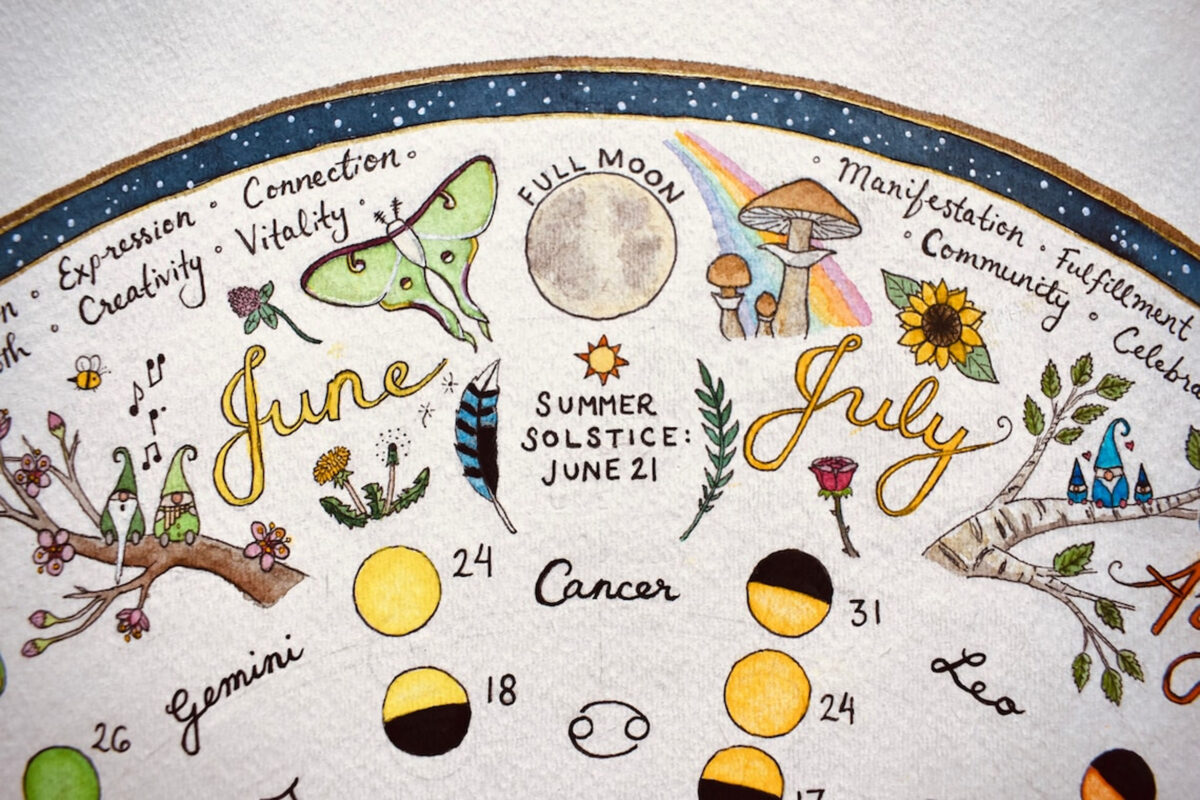 FULL MOON
Connection
Expression
Vitality
Creativity
Manifestation
Fulfillment
Community
June
July
SUMMER
SOLSTICE:
JUNE 21
24
Cancer
31
Gemini
18
24
Leo
26
17